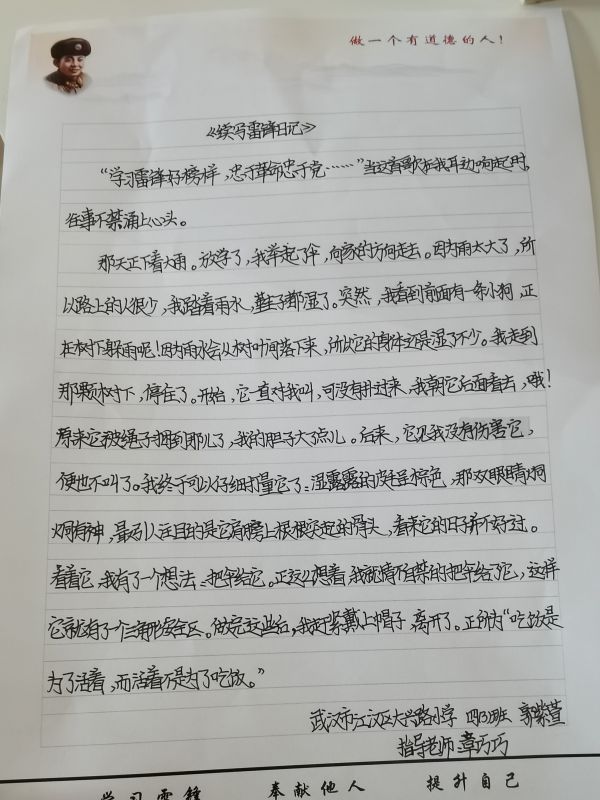 做一个有道德的人!
《续写雷锋日记》
“学习雷锋好榜样,忠于革命忠于党……”当这首歌在我耳边响起时,
往事不禁涌上心头。
那天正下着大雨。放学了,我举起了伞,向家的方向走去。因为雨太大了,所
以路上的人很少,我踏着雨水,鞋子都湿了。突然,我看到前面有一条小狗,正
在树下躲雨呢!因为雨水会从树叶间落下来,所以它的身体还是湿了不少。我走到
那颗树下,停住了。开始,它一直对我叫,可没有扑过来,我朝它后面看去,哦!
原来它被绳子捆到那儿了,我的胆子大了点儿。后来,它见我没有伤害它,
便也不叫了。我终于可以仔细打量它了:湿露露的皮毛呈棕色,那双眼睛炯
炯有神,最引人注目的是它肩膀上根根突起的骨头,看来它的日子并不好过。
看着它,我有了一个想法:把伞给它。正这么想着,我就情不自禁的把伞给了它,这样
它就有了一个三角形安全区。做完这些后,我赶紧戴上帽子,离开了。正所为“吃饭是
为了活着,而活着不是为了吃饭。”
武汉市江汉区大兴路小学 四(3)班 郭紫萱
指导老师 章巧巧
学习雷锋 奉献他人 提升自己